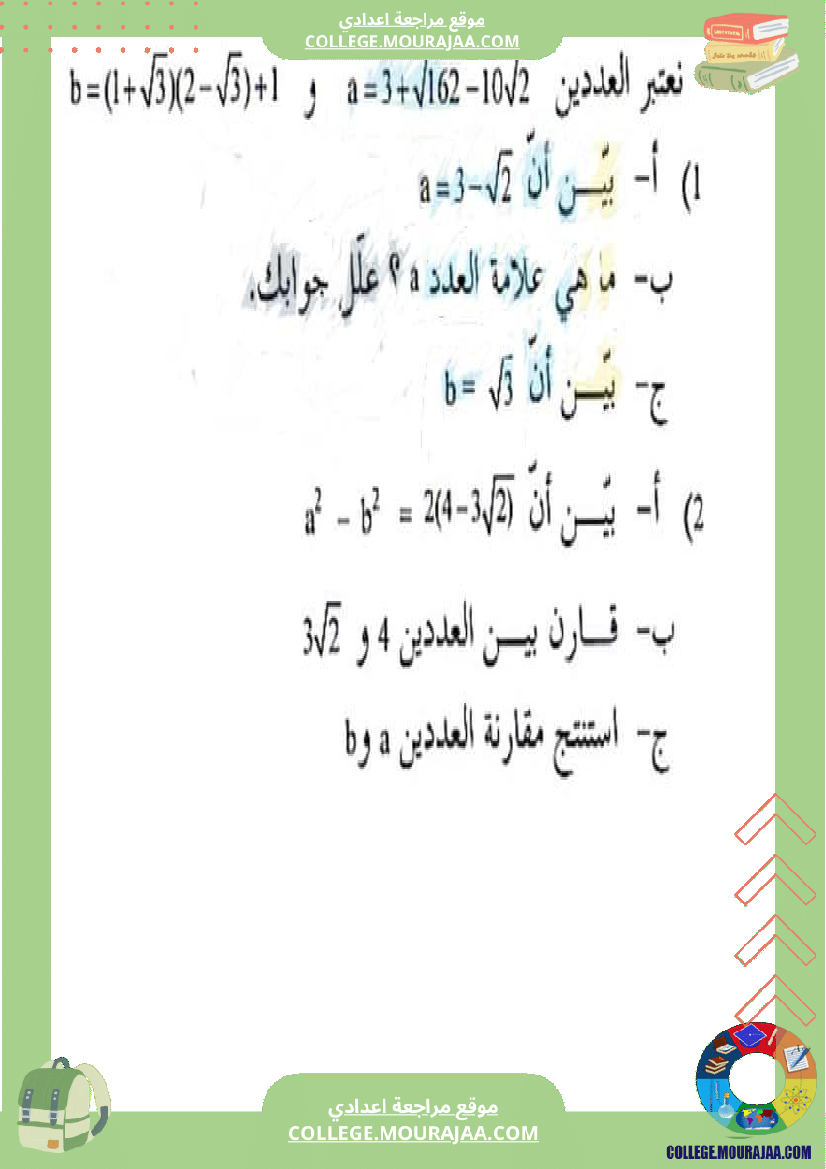 موقع مراجعة اعدادي
COLLEGE.MOURAJAA.COM
نعتبر العددين a = 3+√162 −10√2 و b = (1+√3)(2−√3)+1
1) أ- بيّـــن أنّ a = 3−√2
ب- ما هي علامة العدد a ؟ علّل جوابك.
ج- بيّـــن أنّ b = √3
2) أ- بيّـــن أنّ a² − b² = 2(4−3√2)
ب- قـــارن بيـــن العددين 4 و 3√2
ج- استنتج مقارنة العددين a وb
موقع مراجعة اعدادي
COLLEGE.MOURAJAA.COM
COLLEGE.MOURAJAA.COM